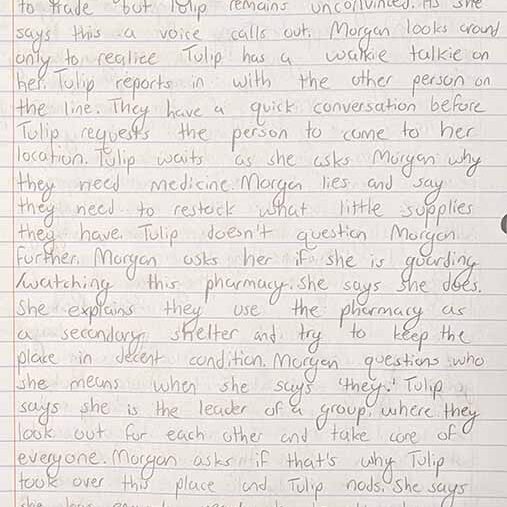 to trade but Tulip remains unconvinced. As she
says this a voice calls out. Morgan looks around
only to realize Tulip has a walkie talkie on
her. Tulip reports in with the other person on
the line. They have a quick conversation before
Tulip requests the person to come to her
location. Tulip waits as she asks Morgan why
they need medicine. Morgan lies and say
they need to restock what little supplies
they have. Tulip doesn't question Morgan
further. Morgan asks her if she is guarding
/watching this pharmacy. She says she does.
She explains they use the pharmacy as
a secondary shelter and try to keep the
place in decent condition. Morgan questions who
she means when she says 'they.' Tulip
says she is the leader of a group, where they
look out for each other and take care of
everyone. Morgan asks if that's why Tulip
took over this place and Tulip nods. She says
she